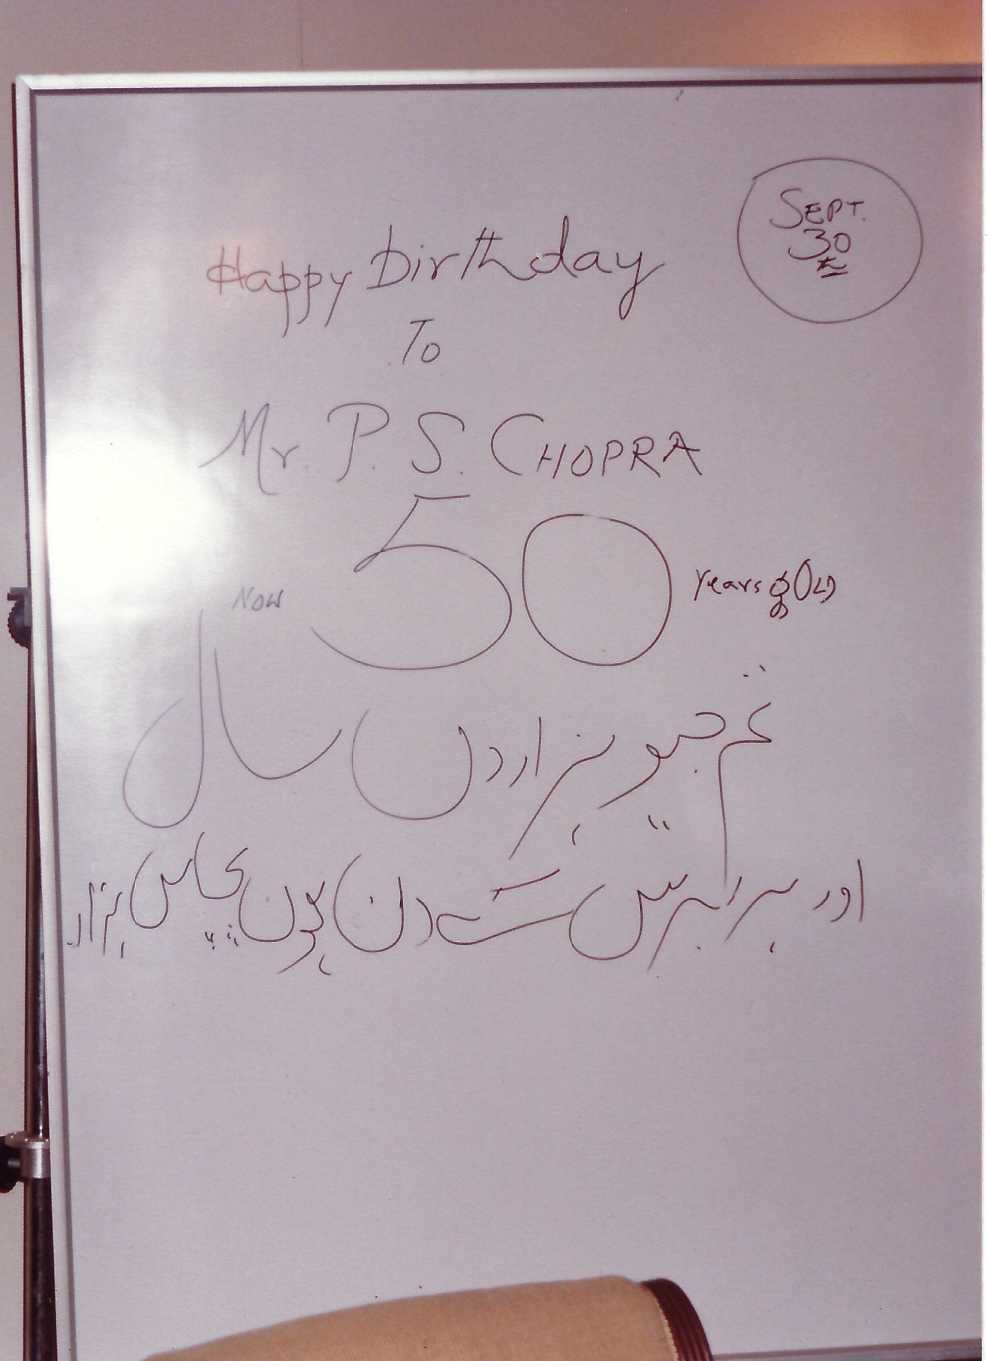 SEPT.
30th
Happy birthday
To
Mr. P. S. CHOPRA
Now 50 Years OLD
تم جیو ہزاروں سال
اور ہر برس کے دن ہوں پچاس ہزار